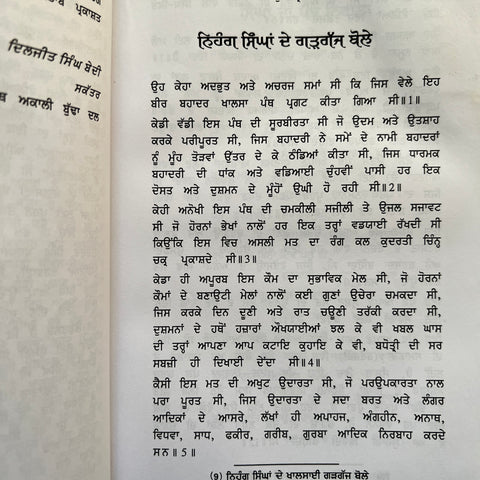 ਪ੍ਰਕਾਸ਼ਤ
ਦਿਲਜੀਤ ਸਿੰਘ ਬੇਦੀ
ਸਕੱਤਰ
ਅਕਾਲੀ ਬੁੱਢਾ ਦਲ
ਨਿਹੰਗ ਸਿੰਘਾਂ ਦੇ ਗੜਗੱਜ ਬੋਲੇ
ਉਹ ਕੇਹਾ ਅਦਭੁਤ ਅਤੇ ਅਚਰਜ ਸਮਾਂ ਸੀ ਕਿ ਜਿਸ ਵੇਲੇ ਇਹ
ਬੀਰ ਬਹਾਦਰ ਖਾਲਸਾ ਪੰਥ ਪ੍ਰਗਟ ਕੀਤਾ ਗਿਆ ਸੀ॥1॥
ਕੇਡੀ ਵੱਡੀ ਇਸ ਪੰਥ ਦੀ ਸੂਰਬੀਰਤਾ ਸੀ ਜੋ ਉਦਮ ਅਤੇ ਉਤਸ਼ਾਹ
ਕਰਕੇ ਪਰੀਪੂਰਤ ਸੀ, ਜਿਸ ਬਹਾਦਰੀ ਨੇ ਸਮੇਂ ਦੇ ਨਾਮੀ ਬਹਾਦਰਾਂ
ਨੂੰ ਮੂੰਹ ਤੋੜਵਾਂ ਉੱਤਰ ਦੇ ਕੇ ਠੰਡਿਆਂ ਕੀਤਾ ਸੀ, ਜਿਸ ਧਾਰਮਕ
ਬਹਾਦਰੀ ਦੀ ਧਾਂਕ ਅਤੇ ਵਡਿਆਈ ਚੁੰਹਵੀਂ ਪਾਸੀ ਹਰ ਇਕ
ਦੋਸਤ ਅਤੇ ਦੁਸ਼ਮਨ ਦੇ ਮੂੰਹੋਂ ਉਘੀ ਹੋ ਰਹੀ ਸੀ॥2॥
ਕੇਹੀ ਅਨੋਖੀ ਇਸ ਪੰਥ ਦੀ ਚਮਕੀਲੀ ਸਜੀਲੀ ਤੇ ਉਜਲ ਸਜਾਵਟ
ਸੀ ਜੋ ਹੋਰਨਾਂ ਭੇਖਾਂ ਨਾਲੋਂ ਹਰ ਇਕ ਤਰ੍ਹਾਂ ਵਡਯਾਈ ਰੱਖਦੀ ਸੀ
ਕਿਉਂਕਿ ਇਸ ਵਿਚ ਅਸਲੀ ਮਤ ਦਾ ਰੰਗ ਕਲ ਕੁਦਰਤੀ ਚਿੰਨ੍ਹ
ਚਕ੍ਰ ਪ੍ਰਕਾਸ਼ਦੇ ਸੀ॥3॥
ਕੇਡਾ ਹੀ ਅਪੂਰਬ ਇਸ ਕੌਮ ਦਾ ਸੁਭਾਵਿਕ ਮੇਲ ਸੀ, ਜੋ ਹੋਰਨਾਂ
ਕੌਮਾਂ ਦੇ ਬਣਾਉਟੀ ਮੇਲਾਂ ਨਾਲੋਂ ਕਈ ਗੁਣਾਂ ਉਚੇਰਾ ਚਮਕਦਾ ਸੀ,
ਜਿਸ ਕਰਕੇ ਦਿਨ ਦੂਣੀ ਅਤੇ ਰਾਤ ਚਊਣੀ ਤਰੱਕੀ ਕਰਦਾ ਸੀ,
ਦੁਸ਼ਮਨਾਂ ਦੇ ਹਥੋਂ ਹਜ਼ਾਰਾਂ ਔਖਯਾਈਆਂ ਝਲ ਕੇ ਵੀ ਖਬਲ ਘਾਸ
ਦੀ ਤਰ੍ਹਾਂ ਆਪਣਾ ਆਪ ਕਟਾਇ ਕੁਹਾਇ ਕੇ ਵੀ, ਬਧੋਤ੍ਰੀ ਦੀ ਸਰ
ਸਬਜ਼ੀ ਹੀ ਦਿਖਾਈ ਦੇਂਦਾ ਸੀ॥4॥
ਕੈਸੀ ਇਸ ਮਤ ਦੀ ਅਖੁਟ ਉਦਾਰਤਾ ਸੀ, ਜੋ ਪਰਉਪਕਾਰਤਾ ਨਾਲ
ਪਰਾ ਪੂਰਤ ਸੀ, ਜਿਸ ਉਦਾਰਤਾ ਦੇ ਸਦਾ ਬਰਤ ਅਤੇ ਲੰਗਰ
ਆਦਿਕਾਂ ਦੇ ਆਸਰੇ, ਲੱਖਾਂ ਹੀ ਅਪਾਹਜ, ਅੰਗਹੀਨ, ਅਨਾਥ,
ਵਿਧਵਾ, ਸਾਧ, ਫਕੀਰ, ਗਰੀਬ, ਗੁਰਬਾ ਆਦਿਕ ਨਿਰਬਾਹ ਕਰਦੇ
ਸਨ॥5॥
(9) ਨਿਹੰਗ ਸਿੰਘਾਂ ਦੇ ਖਾਲਸਾਈ ਗੜਗੱਜ ਬੋਲੇ